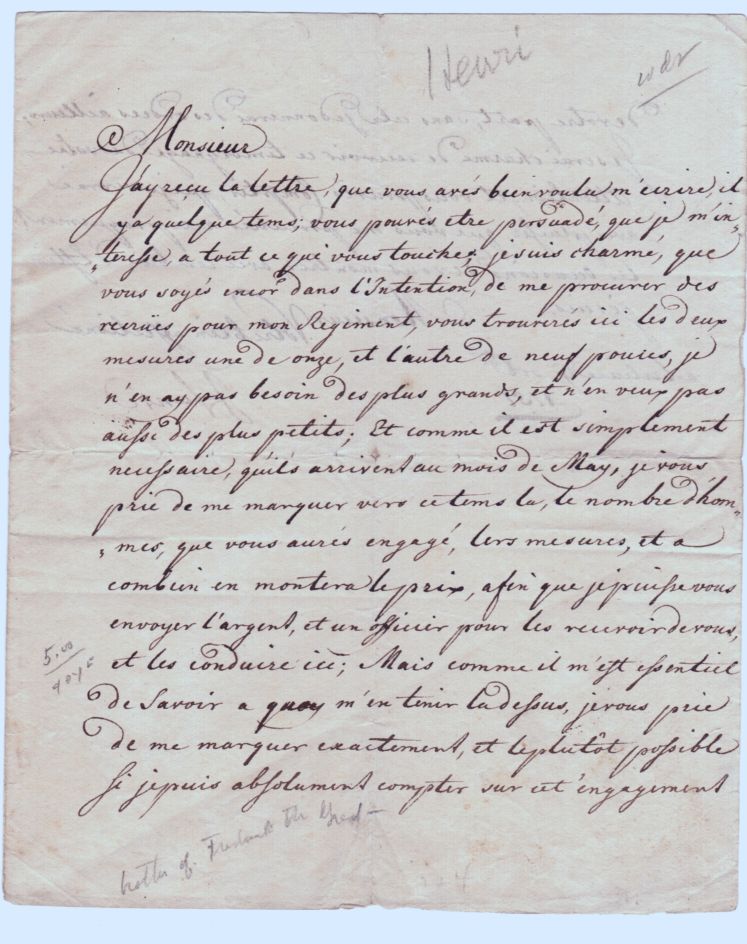 Henri
Monsieur
J'ay reçu la lettre, que vous avés bien voulu m'écrire, il
y a quelque tems; vous pouvés etre persuadé, que je m'in=
=teresse, a tout ce qui vous touche; je suis charmé, que
vous soyés encor dans l'Intention, de me procurer des
recrües pour mon Regiment, vous trouveres ici les deux
mesures une de onze, et l'autre de neuf pouces, je
n'en ay pas besoin des plus grands, et n'en veux pas
aussi des plus petits; Et comme il est simplement
necessaire, qu'ils arrivent au mois de May, je vous
prie de me marquer vers ce tems la, le nombre d'hom=
=mes, que vous aurés engagé, lers mesures, et a
combien en montera le prix, afin que je puisse vous
envoyer l'argent, et un officier pour les recevoir de vous,
et les conduire ici; Mais comme il m'est essentiel
de Savoir a quoy m'en tenir la dessus, je vous prie
de me marquer exactement, et le plutôt possible
Si je puis absolument compter sur cet engagement
5.00
brother of Frederick the Great